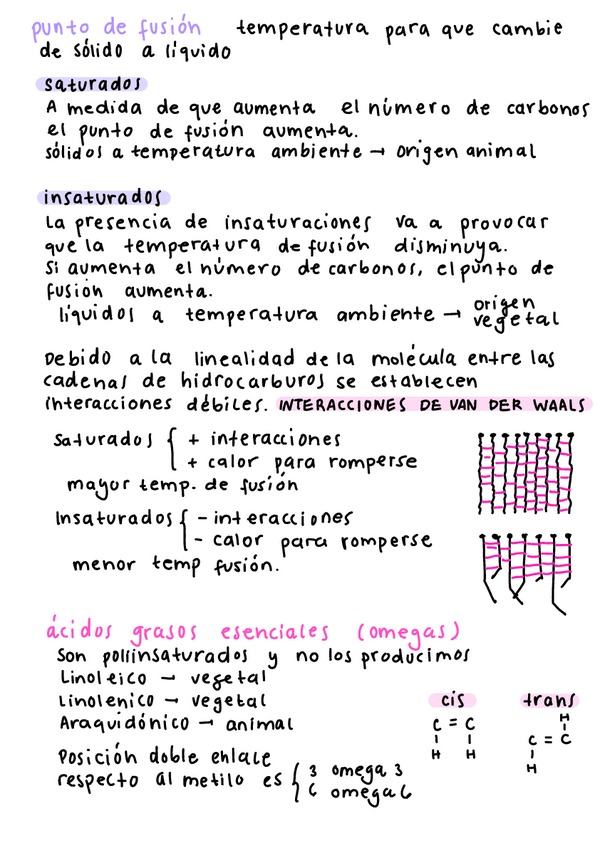 punto de fusión temperatura para que cambie
de sólido a líquido
saturados
A medida de que aumenta el número de carbonos
el punto de fusión aumenta.
sólidos a temperatura ambiente → origen animal
insaturados
La presencia de insaturaciones va a provocar
que la temperatura de fusión disminuya.
Si aumenta el número de carbonos, el punto de
fusión aumenta.
líquidos a temperatura ambiente → origen
vegetal
Debido a la linealidad de la molécula entre las
cadenas de hidrocarburos se establecen
interacciones débiles. INTERACCIONES DE VAN DER WAALS
Saturados { + interacciones
+ calor para romperse
mayor temp. de fusión
Insaturados { - interacciones
- calor para romperse
menor temp fusión.
ácidos grasos esenciales (omegas)
Son poliinsaturados y no los producimos
Linoleico → vegetal
Linolenico → vegetal
Araquidónico → animal
cis
C = C
H H
trans
H
C = C
H
Posición doble enlace
respecto al metilo es { 3 omega 3
6 omega 6